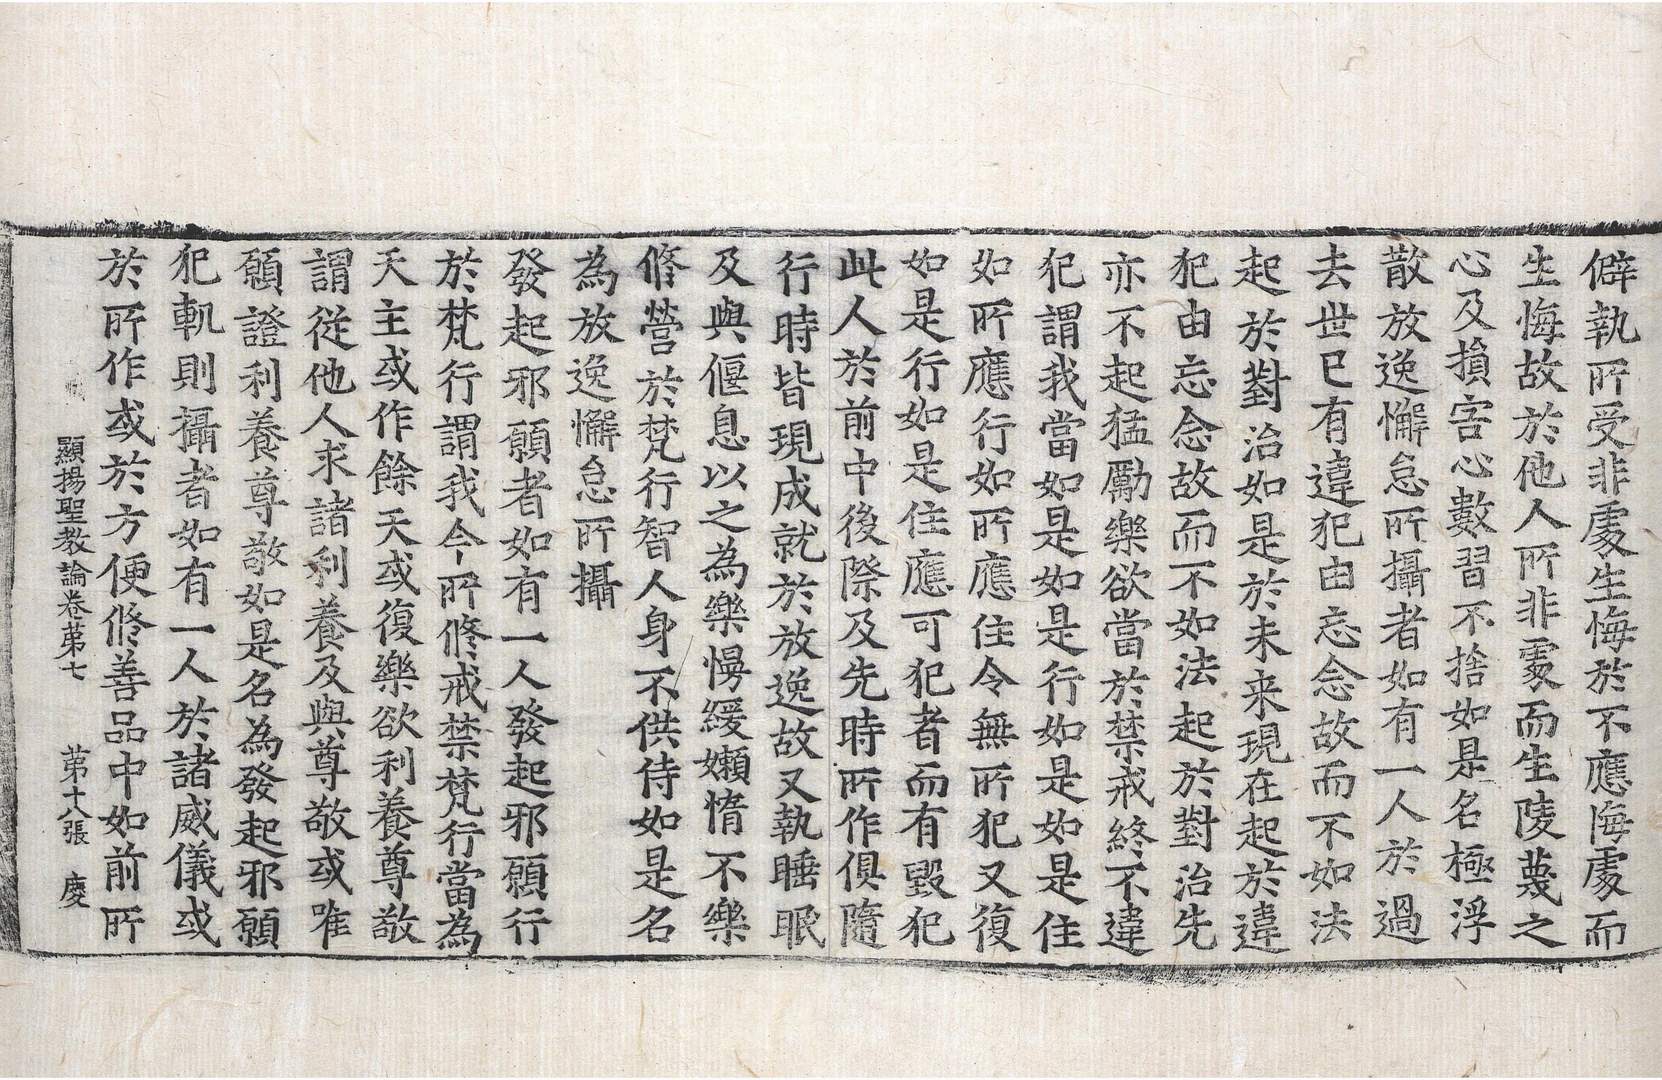 僻執所受非處生悔於不應悔處而
生悔故於他人所非處而生陵蔑之
心及損害心數習不捨如是名極浮
散放逸懈怠所攝者如有一人於過
去世已有違犯由忘念故而不如法
起於對治如是於未来現在起於違
犯由忘念故而不如法起於對治先
亦不起猛勵樂欲當於禁戒終不違
犯謂我當如是如是行如是如是住
如所應行如所應住令無所犯又復
如是行如是住應可犯者而有毀犯
此人於前中後際及先時所作俱隨
行時皆現成就於放逸故又執睡眠
及與偃息以之為樂慢緩嬾惰不樂
脩營於梵行智人身不供侍如是名
為放逸懈怠所攝
發起邪願者如有一人發起邪願行
於梵行謂我今所脩戒禁梵行當為
天主或作餘天或復樂欲利養尊敬
謂從他人求諸利養及與尊敬或唯
願證利養尊敬如是名為發起邪願
犯軌則攝者如有一人於諸威儀或
於所作或於方便脩善品中如前所
顯揚聖教論卷苐七 苐十八張 慶